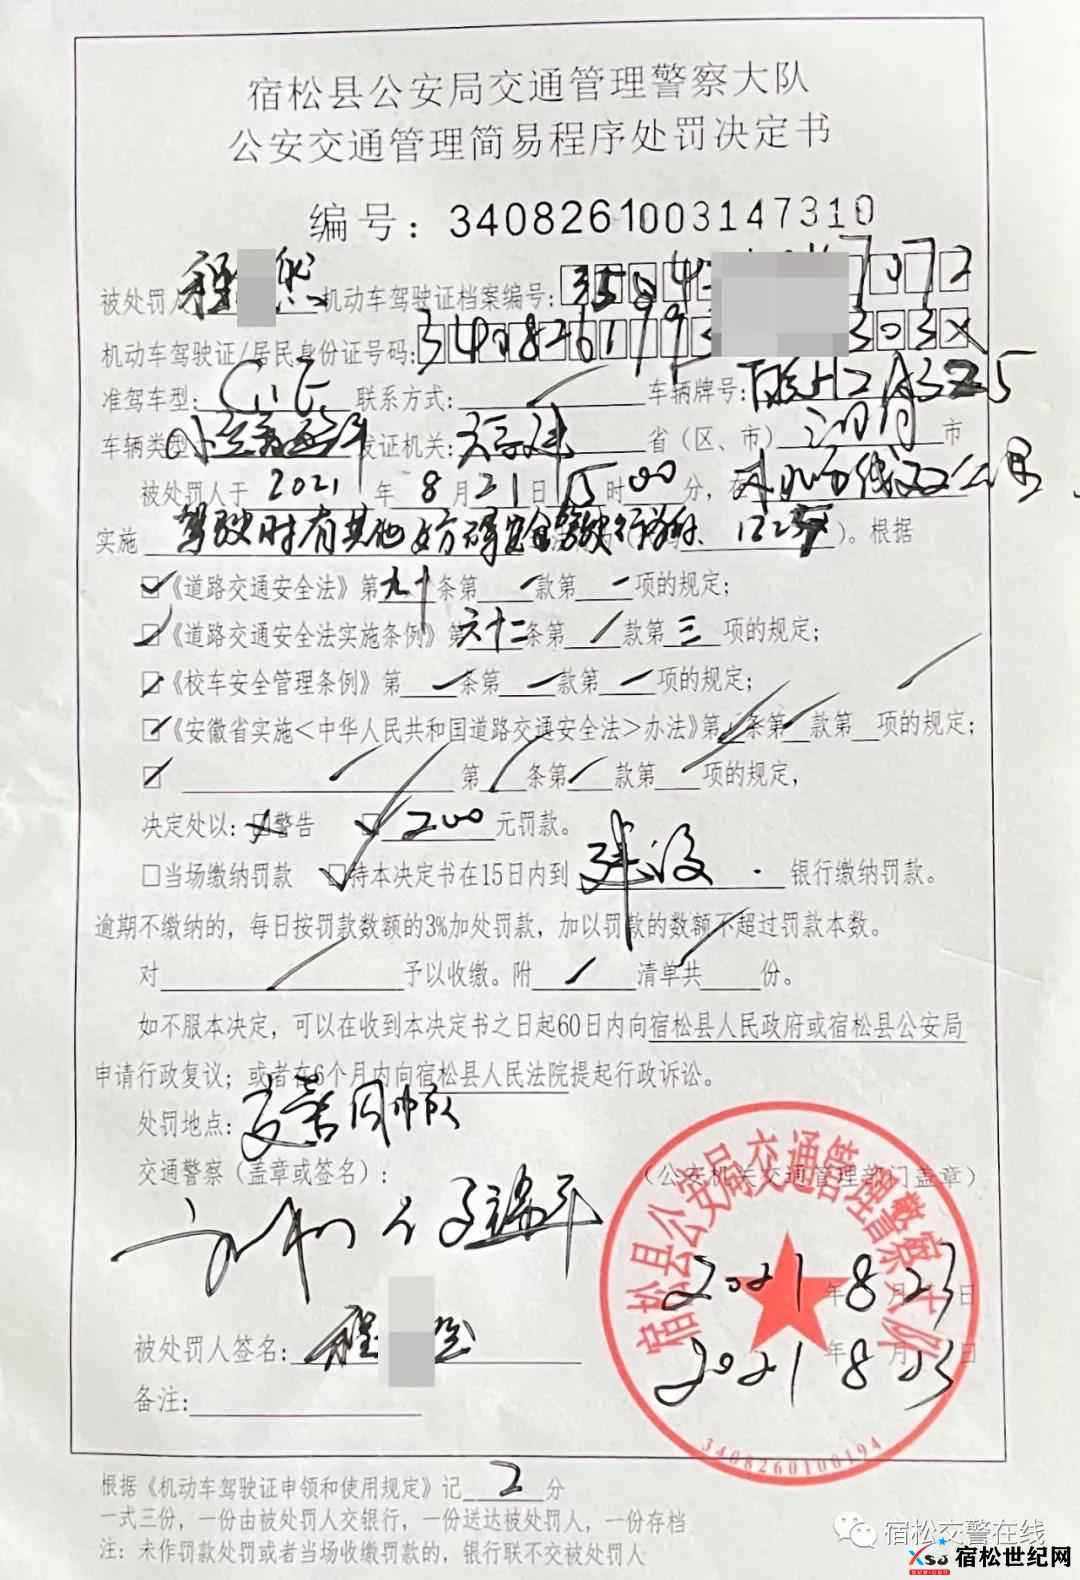 宿松县公安局交通管理警察大队
公安交通管理简易程序处罚决定书
编号：3408261003147310
被处罚人 程 机动车驾驶证档案编号： 7072
机动车驾驶证/居民身份证号码：340826199 303X
准驾车型：C1E 联系方式： 车辆牌号：
车辆类型： 发证机关： 省（区、市） 市
被处罚人于 2021 年 8 月 21 日 15 时 00 分，在
实施 驾驶时有其他妨碍安全驾驶行为 )。根据
《道路交通安全法》第九十条第 款第 项的规定；
《道路交通安全法实施条例》第六十二条第 款第三项的规定；
《校车安全管理条例》第 条第 款第 项的规定；
《安徽省实施<中华人民共和国道路交通安全法>办法》第 条第 款第 项的规定；
第 条第 款第 项的规定，
决定处以：☒警告 ☑ 200 元罚款。
☐当场缴纳罚款 ☑持本决定书在15日内到 建设 银行缴纳罚款。
逾期不缴纳的，每日按罚款数额的3%加处罚款，加以罚款的数额不超过罚款本数。
对 予以收缴。附 清单共 份。
如不服本决定，可以在收到本决定书之日起60日内向宿松县人民政府或宿松县公安局
申请行政复议；或者在6个月内向宿松县人民法院提起行政诉讼。
处罚地点： 中队
交通警察（盖章或签名）： （公安机关交通管理部门盖章）
宿松县公安局交通管理警察大队
2021 年 8 月 23 日
被处罚人签名：程
2021 年 8 月 23 日
备注：
3408260100194
根据《机动车驾驶证申领和使用规定》记 2 分
一式三份，一份由被处罚人交银行，一份送达被处罚人，一份存档
注：未作罚款处罚或者当场收缴罚款的，银行联不交被处罚人
宿松交警在线
XSJ 宿松世纪网